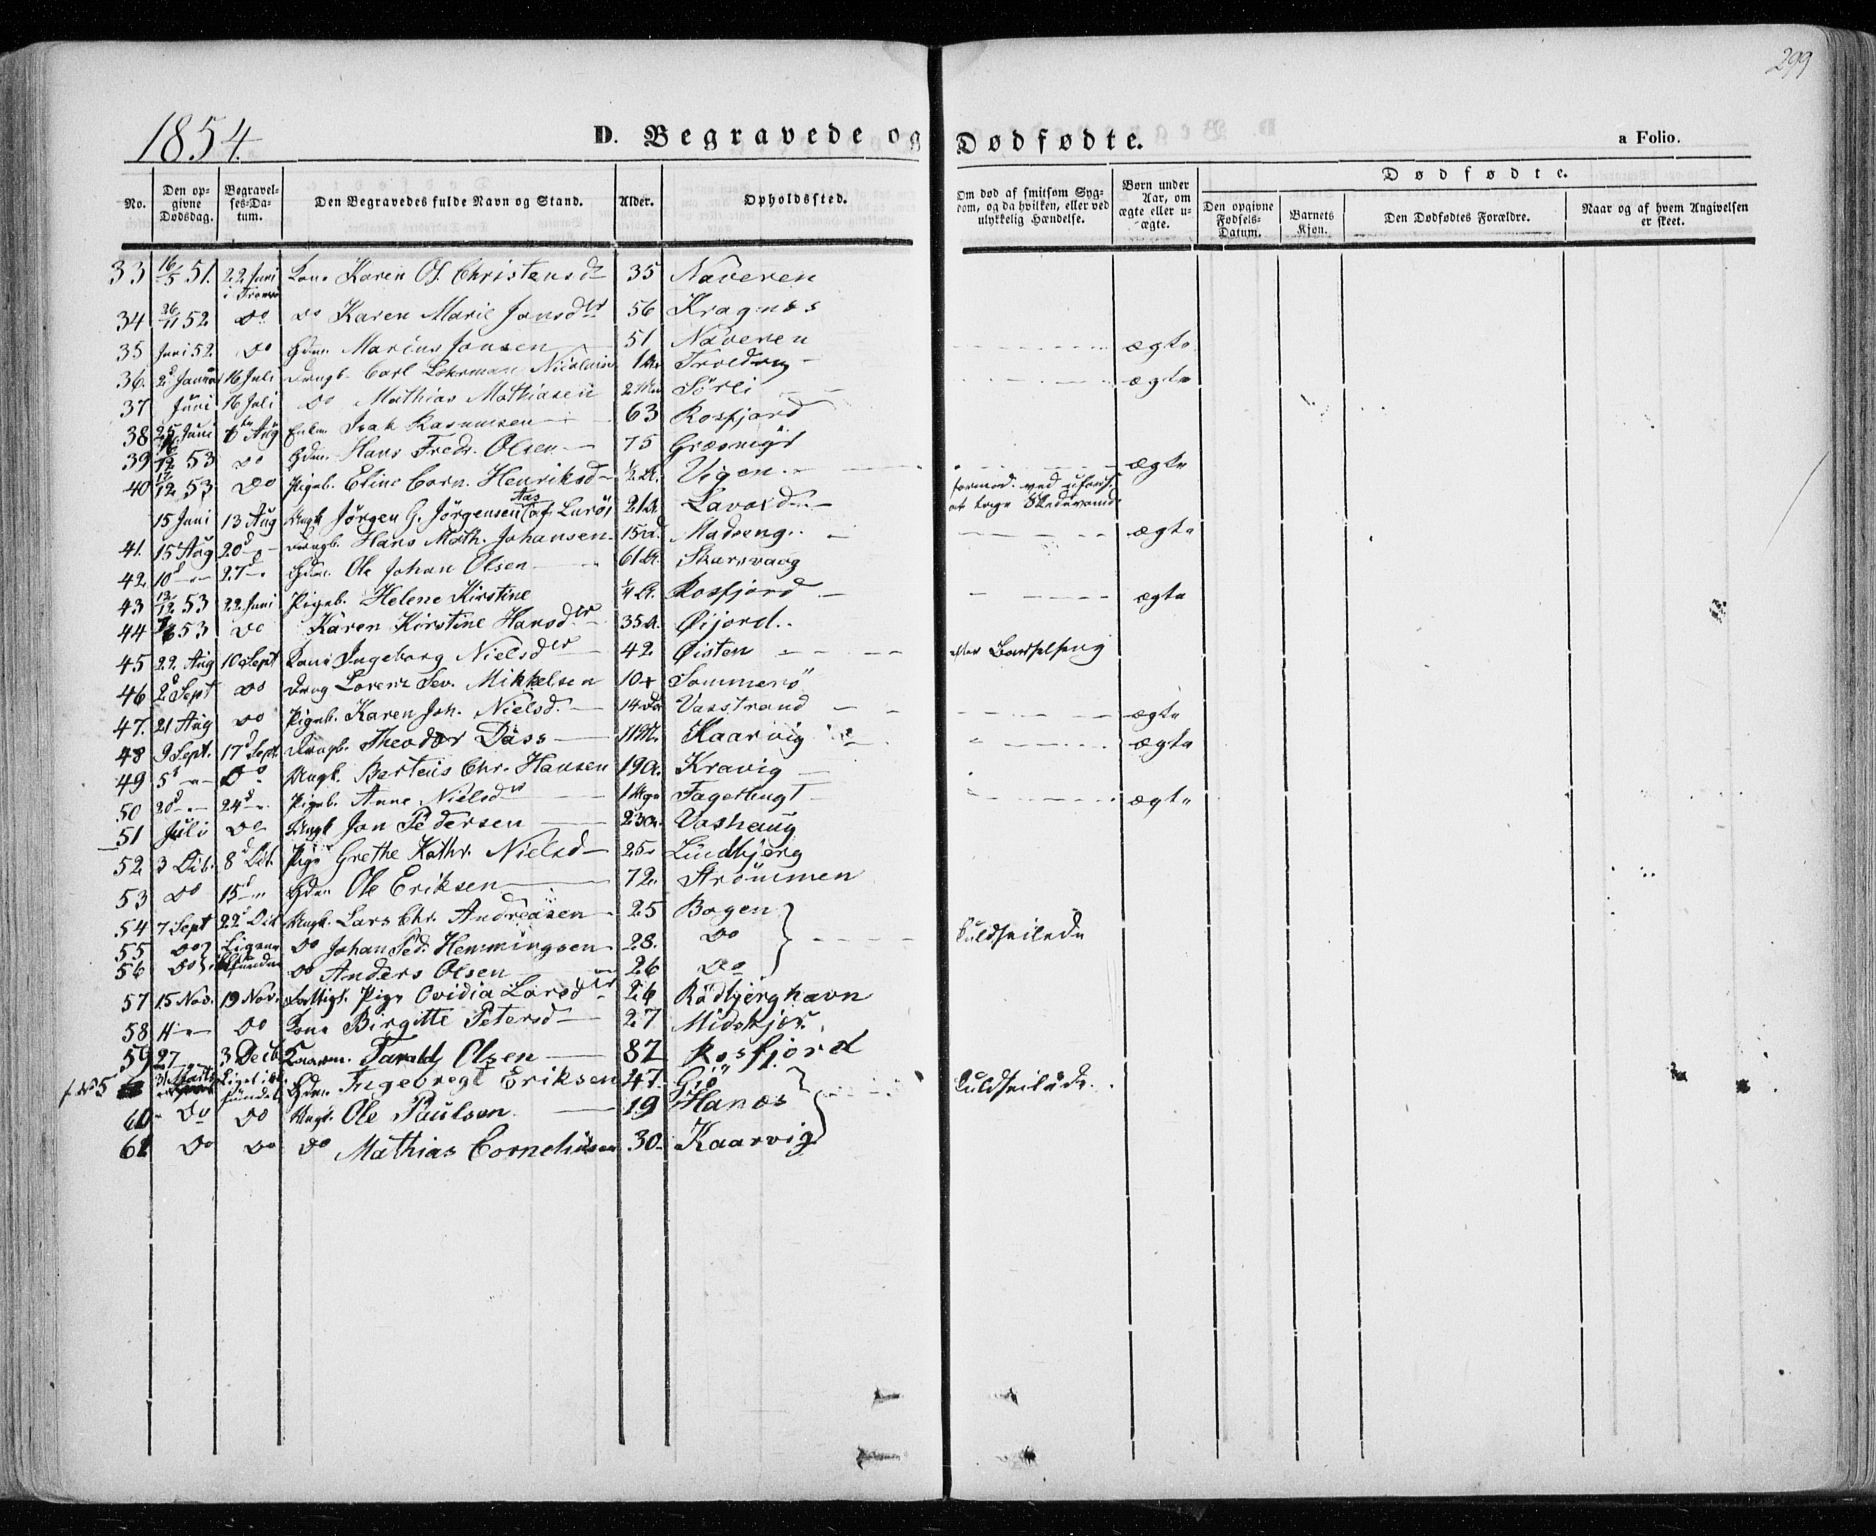 299
1854.
D. Begravede og Dødfødte.
a Folio.
No.
Den opgivne Dødsdag.
Begravelses-Datum.
Den Begravedes fulde Navn og Stand.
Alder.
Opholdssted.
Om død af smitsom Sygdom, og da hvilken, eller ved ulykkelig Hændelse.
Børn under Aar, om ægte eller uægte.
Dødfødte.
Den opgivne Fødsels-Datum.
Barnets Kjøn.
Den Dødfødtes Forældre.
Naar og af hvem Angivelsen er skeet.
33 16/5 51. 22 Juni i Tromsø Kone Karen Ol. Christensd 35 Naveren
34 26/11 52 Do Do Karen Marie Jonsdtr 56 Kragnæs
35 Juni 52. Do Gdm. Marius Jonsen 51 Naveren ægte
36. 2d Januar 16 Juli Drngb. Carl Lohrman Nicolaisen 1 Troldvig ægte
37 Juni 16 Juli Do Mathias Mathiasen Sörli
38 25 Juni 6te Aug Isak Rasmussen 63 Rosfjord
39 12 53 Do Gdm. Hans Fredr. Olsen 75 Græsmyr
40 12/12 53 Do Pigeb. Eline Corn. Henriksd ½ A. Vigen ægte
15 Juni 13 Aug Ungk Jörgen G. Jörgensen Aas af Lurö 21 A. Lavold formod. ved
41. 15 Aug 20d Drngb. Hans Math. Johansen 15 d. Madseng ægte
42. 10d 27d Gdm. Ole Johan Olsen 61 A. Skarsvaag
43 12/12 53 22 Juni Pigeb. Helene Kirstine ¼ A. Rosfjord ægte
44 53 Do Karen Kirstine Hansdtr 35 A. Øijord
45 22 Aug 10 Sept Kone Ingeborg Nielsdtr 42. Øisten efter Barselseng
46 2d Sept Do Drng Lorenz Sev. Mikkelsen 10 Sommerö
47. 21 Aug Do Pigeb. Karen Joh. Nielsd. 14 Da Vasstrand ægte
48 9 Sept. 17d Sept. Drngb. Theodor Dass 11 M. Kaarvig ægte
49 5d Do Ungk. Berteus Chr. Hansen 19 a. Kravig
50 20d 24d Pigeb. Anne Nielsdtr 1 Fagerbugt ægte
51 Juli Do Ungk Jon Pedersen 23 a. Vashaug
52. 3 Octb. 8d Oct. Pige Grethe Kathr. Nielsd 25 Lindbjerg
53 Do 15d Gdm Ole Eriksen 72. Strömmen
54 7 Sept 22d Oct Ungk. Lars Chr. Andreasen 25 Bogen
55 Do Ligene Do Johan Ped. Hemmingsen 28. Do Kuldseilede
56 Do funden Do Anders Olsen 26 Do
57 15 Nov. 19 Nov. Fattigl. Pige Ovidia Larsdtr 26 Rödbjerghavn
58 4 Do Kone Birgitte Petersd 27 Midskjær
59 27 3 Decb Taraldt Olsen 82 Rosfjord
31 Marts Liget ikke fundet Gdm. Ingebregt Eriksen 47. Gjö Kuldseilede
60 Do Do Ungk. Ole Paulsen 19 Hanæs
61 Do Do Do Mathias Corneliusen 30. Kaarvig